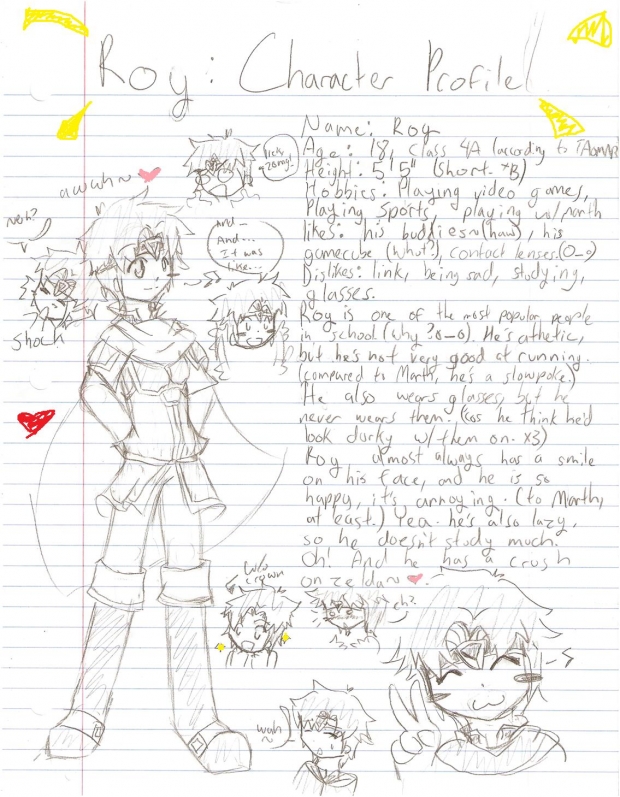 Roy: Character Profile!
Name: Roy
Age: 18, Class 4A (according to
Height: 5'5" (short. XB)
Hobbies: Playing video games,
Playing Sports, playing w/marth
likes: his buddies~(haw), his
gamecube (what?), contact lenses.(O_o)
Dislikes: link, being sad, studying,
glasses.
Roy is one of the most popular people
in school (why?o_o). He's athetic,
but he's not very good at running.
(compared to Marth, he's a slowpoke.)
He also wears glasses, but he
never wears them. (cos he think he'd
look dorky w/ them on. X3)
Roy almost always has a smile
on his face, and he is so
happy, it's annoying. (to Marth,
at least.) Yea. he's also lazy,
so he doesn't study much.
Oh! And he has a crush
on zelda~
awah~
neh?
shock
And_
And...
It was
like...
w/o
crown
eh?
wah
~